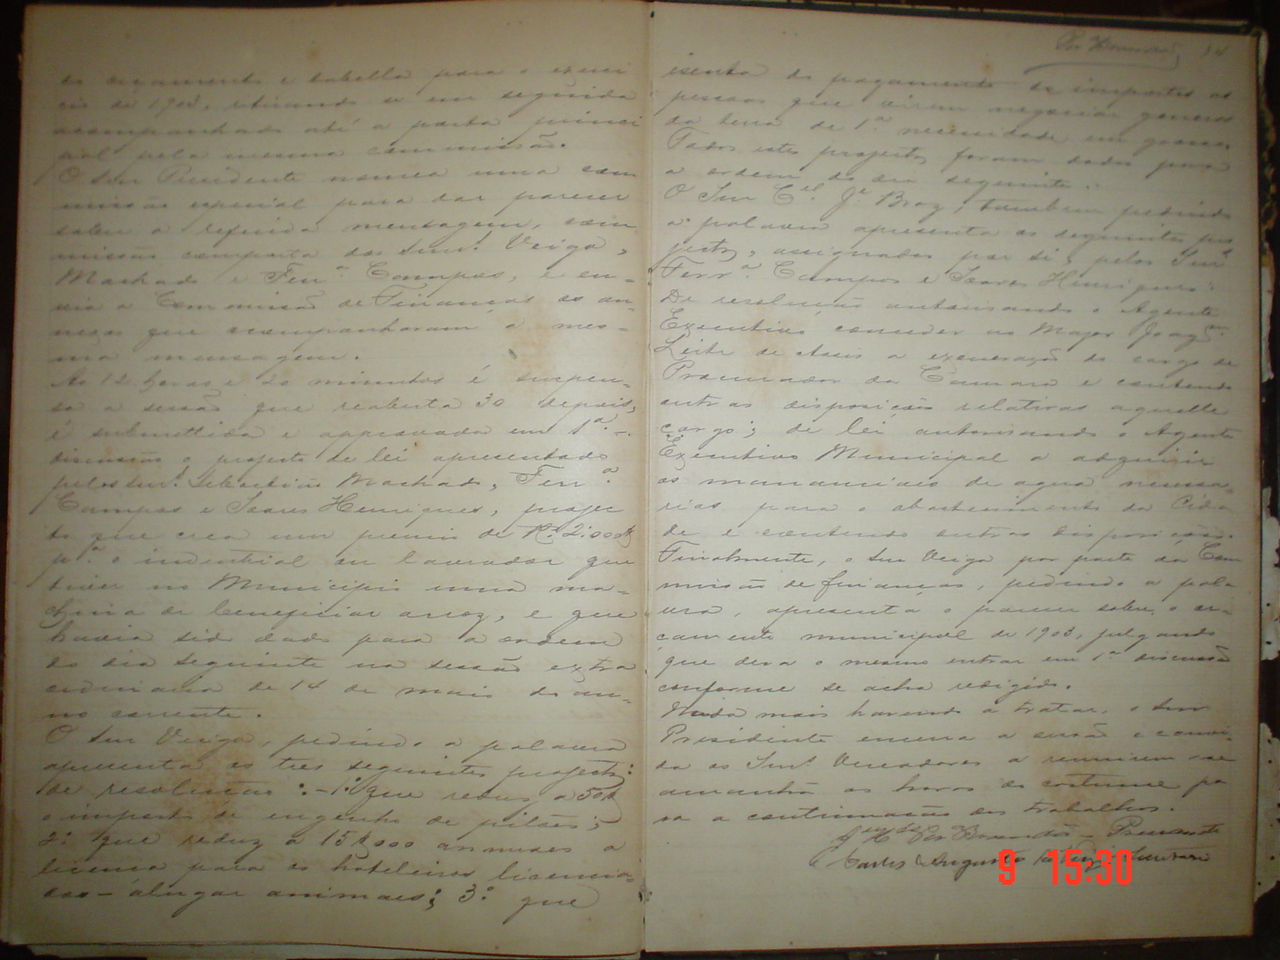 do orçamento e tabella para o exerci
cio de 1903, retirando se em seguida
acompanhado até a porta princi
pal pela mesma commissão.
O Snr Presidente nomea uma com
missão especial para dar parecer
sobre a referida mensagem, com
missão composta dos Snrs. Veiga,
Machado e Ferrª Campos, e en-
via a Commissão de Finanças os an-
nexos que acompanharam a mes-
ma mensagem.
As 12 horas e 20 minutos é suspen-
sa a sessão que reaberta 30 depois,
é submettida e approvada em 1ª-
discussão o projecto de lei apresentado
pelos Snrs. Sebastião Machado, Ferrª
Campos e Soares Henriques, projec
to que crea um premio de Rs 2:000$
pª o industrial ou lavrador que
tiver no Municipio uma ma-
china de beneficiar arroz, e que
havia sido dado para a ordem
do dia seguinte na sessão extra
ordinaria de 14 de maio do an-
no corrente.
O Snr Veiga, pedindo a palavra
apresenta os tres seguintes projectos
de resolução: - 1º que reduz a 50$
o imposto de engenho de pilões;
2º que reduz a 15$000 annuaes a
licença para os hoteleiros licencia-
dos - alugar animaes; 3º que
34
isenta do pagamento de impostos as
pessoas que virem negociar generos
da terra de 1ª necessidade em grosso.
Todos estes projectos foram dados para
a ordem do dia seguinte.
O Snr Cel. Je Braz, tambem pedindo
a palavra apresenta os seguintes pro
jectos, assignados por si, pelos Snrs
Ferrª Campos e Soares Henriques:
De resolução autorisando o Agente
Executivo conceder ao Major Joaqm
Leite de Assis a exoneração do cargo de
Procurador da Camara e contendo
outras disposições relativas aquelle
cargo; de lei autorisando o Agente
Executivo Municipal a adquirir
os mananciaes de agua necessa-
rias para o abastecimento da Cida
de e contendo outras disposições.
Finalmente, o Snr Veiga por parte da Com
missão de finanças, pedindo a pala
vra, apresenta o parecer sobre o or-
çamento municipal de 1903, julgando
que deva o mesmo entrar em 1ª discussão
conforme se acha redigido.
Nada mais havendo a tratar, o Snr
Presidente encerra a sessão e convi
da os Snrs Vereadores a reunirem-se
amanhã as horas do costume pa
ra a continuação dos trabalhos.
Brandão - Presidente
Carlos Augusto
9 15:30